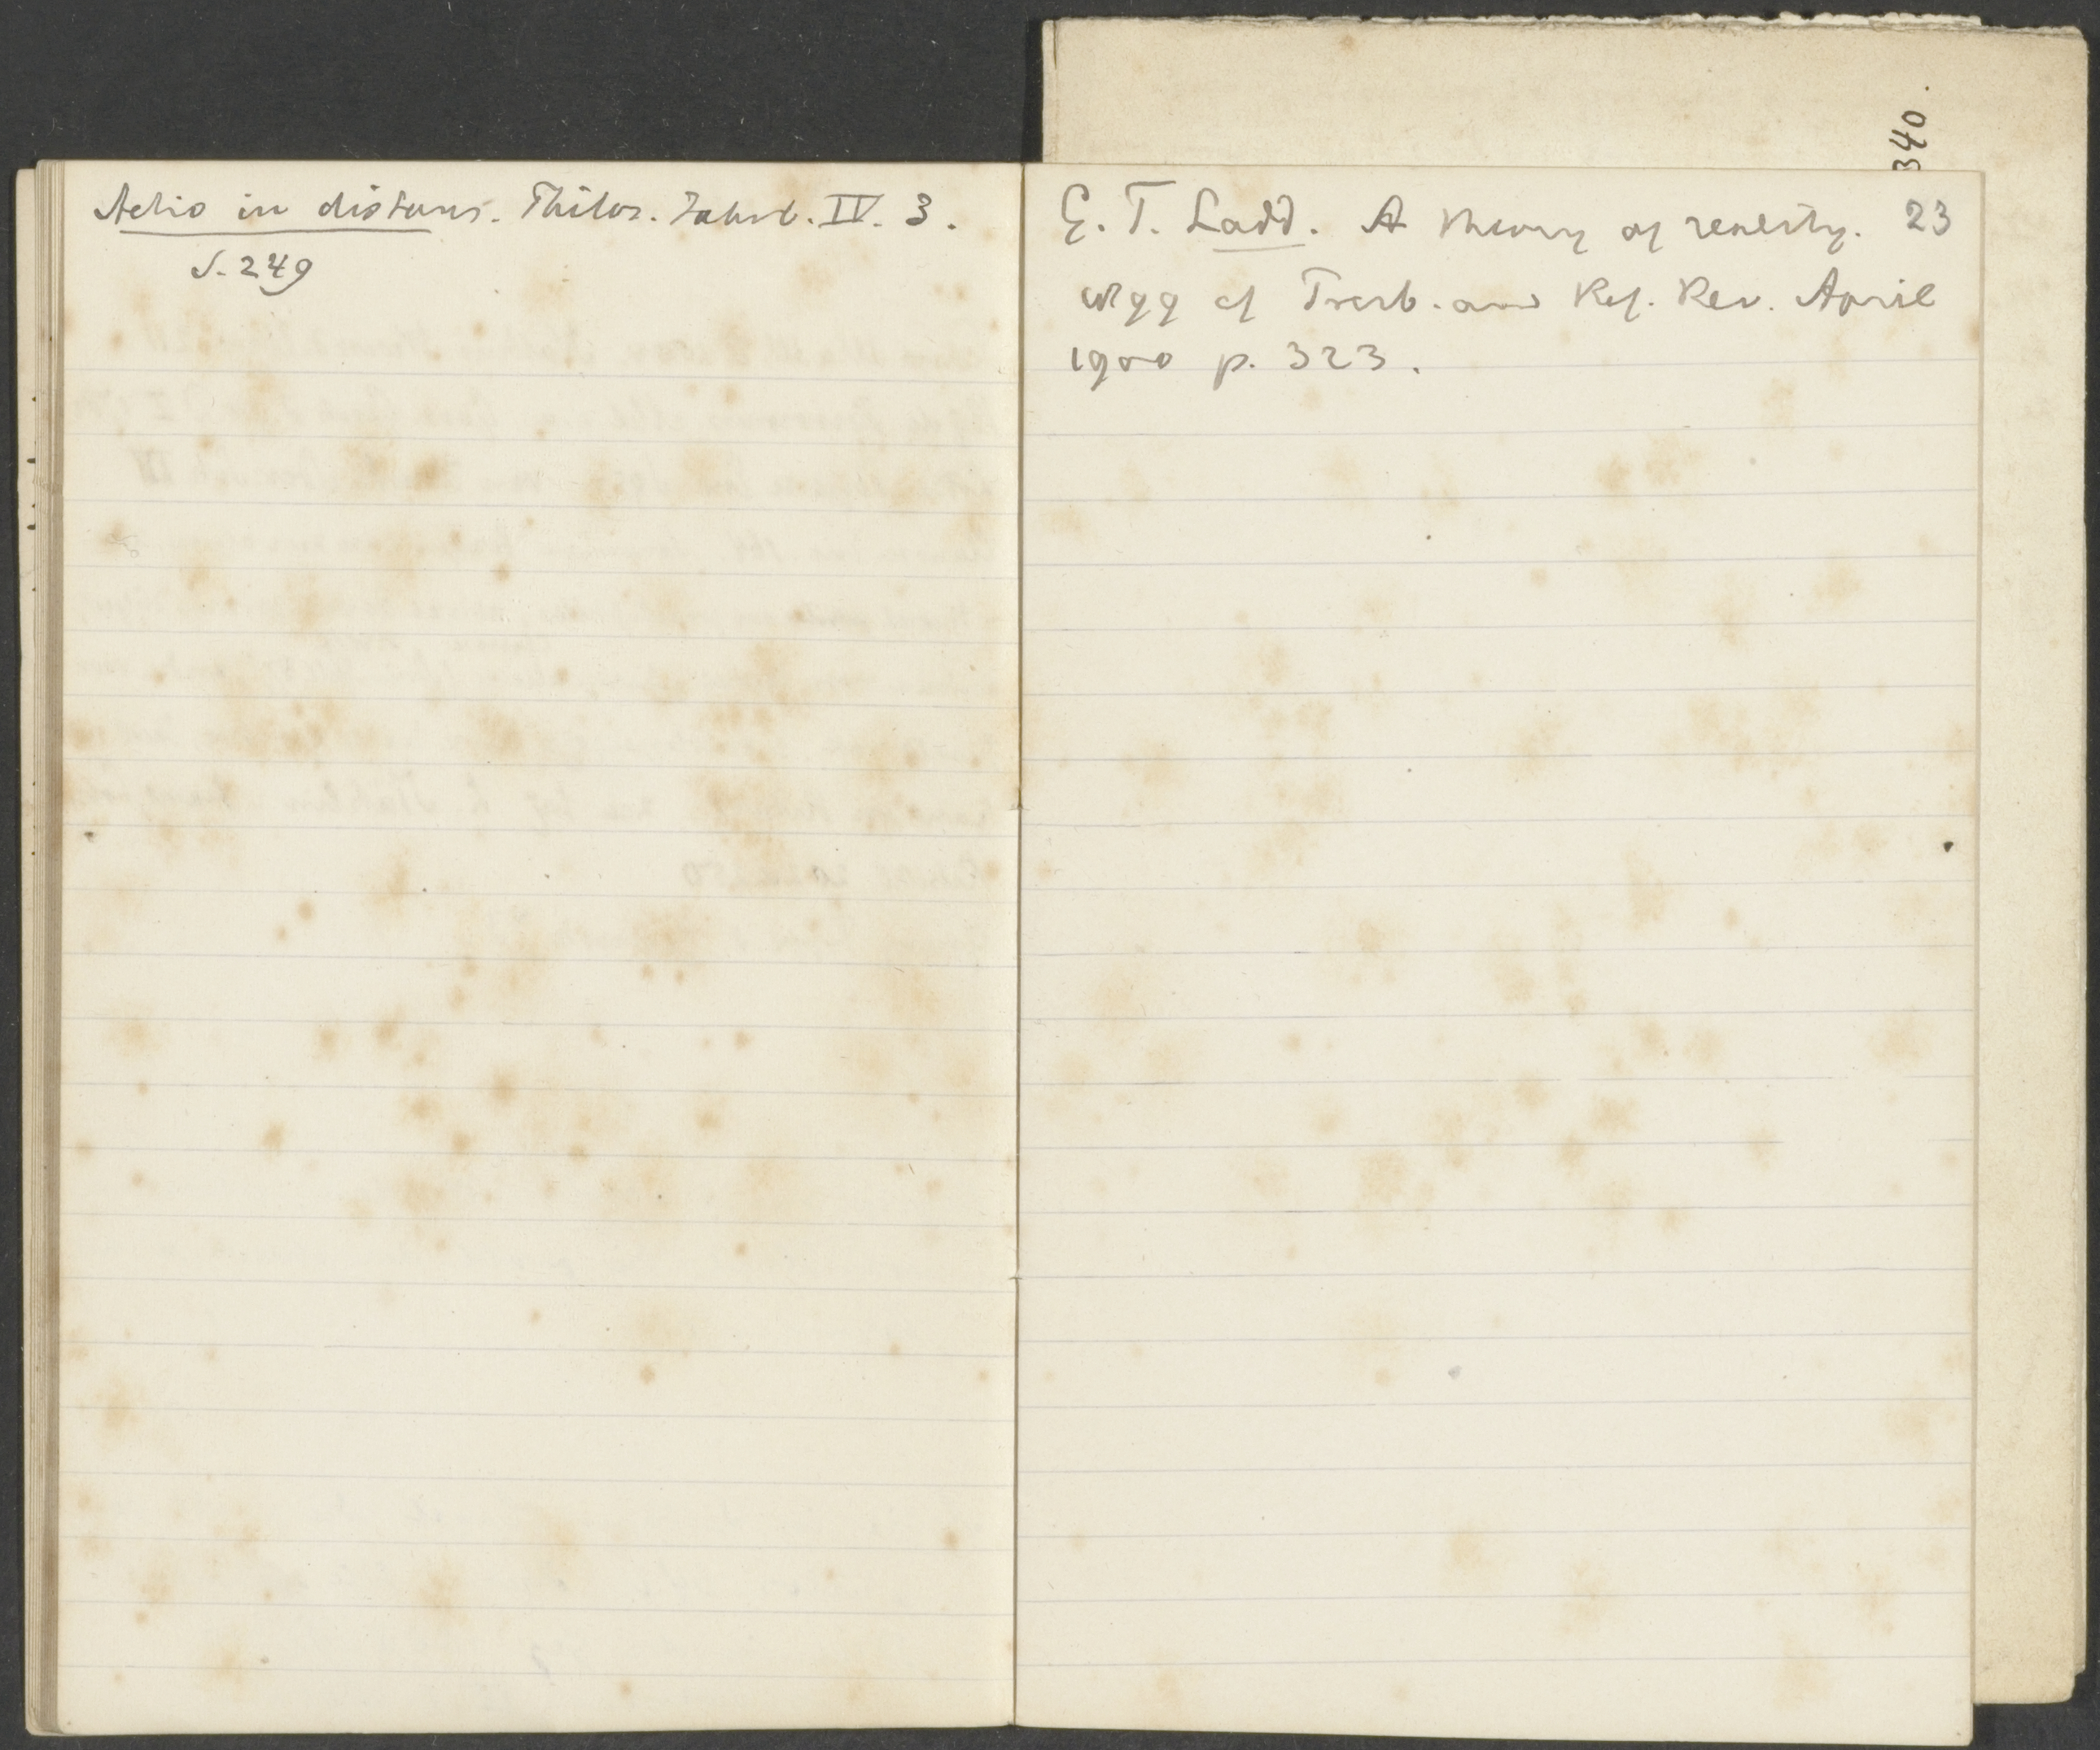 Actio in distans. Philos. Jahrb. IV. 3.
S. 249
E. T. Ladd. A theory of reality. 23
1899 cf Presb. and Ref. Rev. April
1900 p. 323.
340.